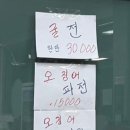 굴 전
30,000
오징어
파전
15000
오징어